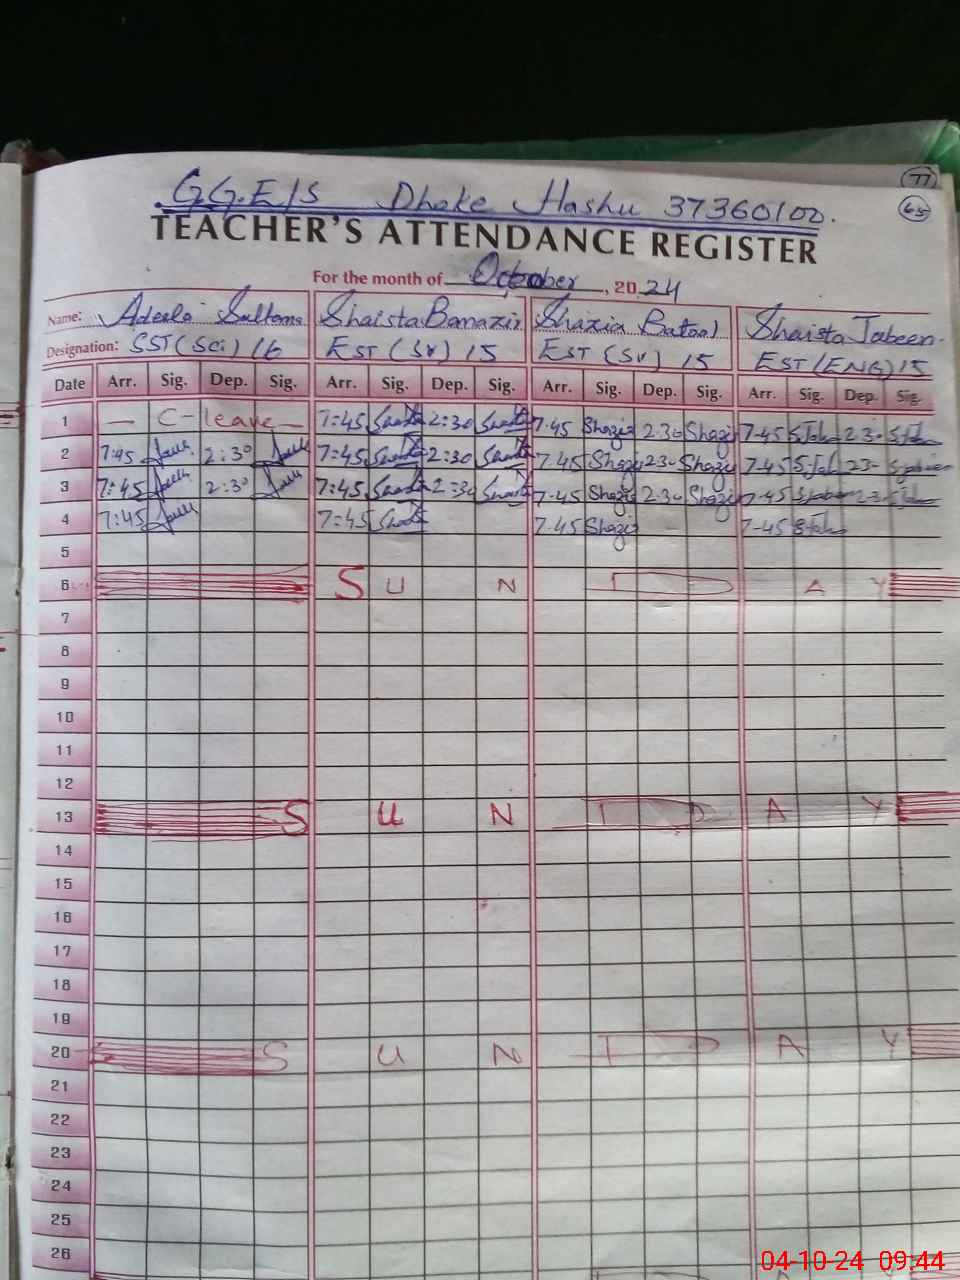 77
G.G.E/S Dhoke Hashu 37360100.
65
TEACHER'S ATTENDANCE REGISTER
For the month of October, 20 24
Name: Adeela Sultana Shaista Banazir Shazia Batool Shaista Jabeen.
Designation: SST (Sci) 16 EST (SV) 15 EST (SV) 15 EST (ENG) 15
Date Arr. Sig. Dep. Sig. Arr. Sig. Dep. Sig. Arr. Sig. Dep. Sig. Arr. Sig. Dep. Sig.
1 — C- leave — 7:45 2:30 7.45 Shazia 2.30 Shazia 7-45 S.Jab 2.3-
2 7:45 2:30 7:45 2:30 7.45 Shazia 2.30 Shazia 7-45 S.Jab 2.3-
3 7:45 2:30 7:45 2:30 7-45 Shazia 2.30 Shazia 7-45 2.3-
4 7:45 7:45 7.45 Shazia 7-45 S.Jab
5
6 S U N D A Y
7
8
9
10
11
12
13 S U N D A Y
14
15
16
17
18
19
20 S U N D A Y
21
22
23
24
25
26
04-10-24 09:44